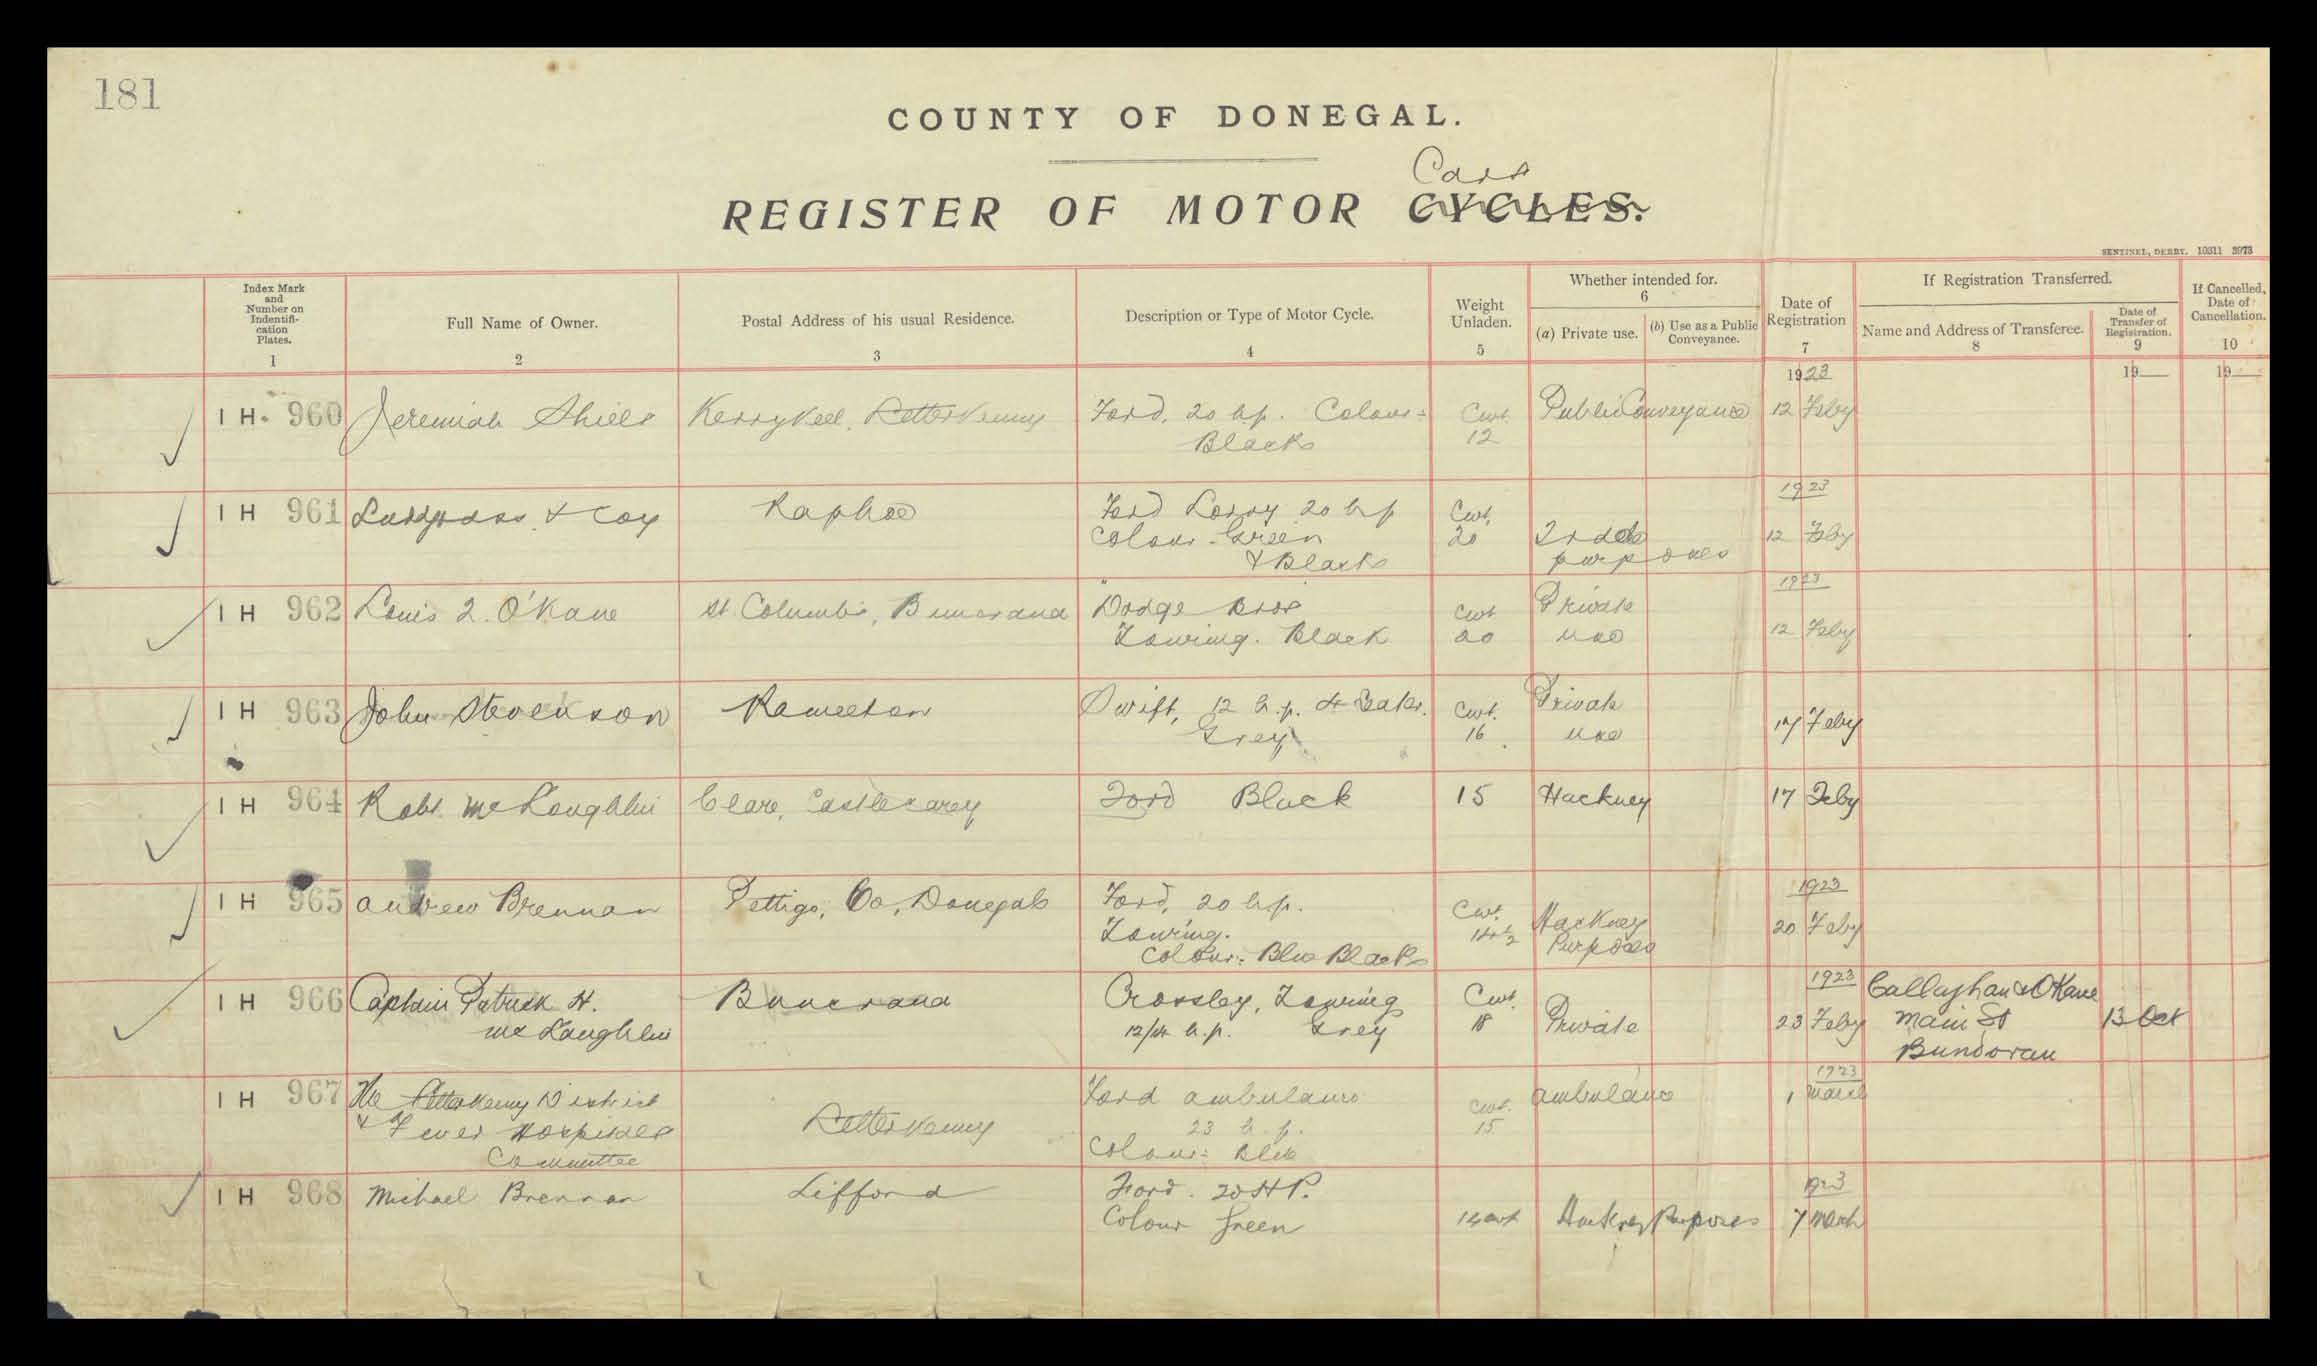 181
COUNTY OF DONEGAL.
Cars
REGISTER OF MOTOR CYCLES.
SENTINEL, DERRY. 10311 3973
Index Mark and Number on Indentifi- cation Plates. 1
Full Name of Owner. 2
Postal Address of his usual Residence. 3
Description or Type of Motor Cycle. 4
Weight Unladen. 5
Whether intended for. 6
(a) Private use.
(b) Use as a Public Conveyance.
Date of Registration 7
If Registration Transferred.
Name and Address of Transferee. 8
Date of Transfer of Registration. 9
If Cancelled, Date of Cancellation. 10
1923
19
19
IH. 960 Jeremiah Shiels Kerrykeel, Letterkenny Ford, 20 h.p. Colour: Cwt. Public Conveyance 12 Feby
Black 12
1923
IH 961 & Coy Raphoe Ford Lorry 20 hp Cwt.
Colour. Green 20 Trade 12 Feby
& Black purposes
1923
IH 962 Louis J. O'Kane St. Columbs, Buncrana Dodge Bros Cwt Private
Touring. Black 20 use 12 Feby
IH 963 John Stevenson Ramelton Swift, 12 h.p. 4 Seater. Cwt. Private 17 Feby
Grey 16 use
IH 964 Robt. McLoughlin Clare, Castlecarey Ford Black 15 Hackney 17 Feby
1923
IH 965 Andrew Brennan Pettigo, Co, Donegal Ford, 20 h.p. Cwt. Hackney 20 Feby
Touring. 14½ Purposes
Colour: Blue Black
1923
IH 966 Captain Patrick H. Buncrana Crossley, Touring Cwt. Callaghan & O'Kane
McLaughlin 12/14 h.p. Grey 18 Private 23 Feby Main St 13 Oct
Bundoran
1923
IH 967 The Letterkenny District Ford Ambulance Ambulance 1 March
& Fever Hospital Letterkenny 23 h.p. Cwt. 15
Committee Colour: Blue
1923
IH 968 Michael Brennan Lifford Ford. 20 HP.
Colour Green 14 cwt Hackney Purposes 7 March